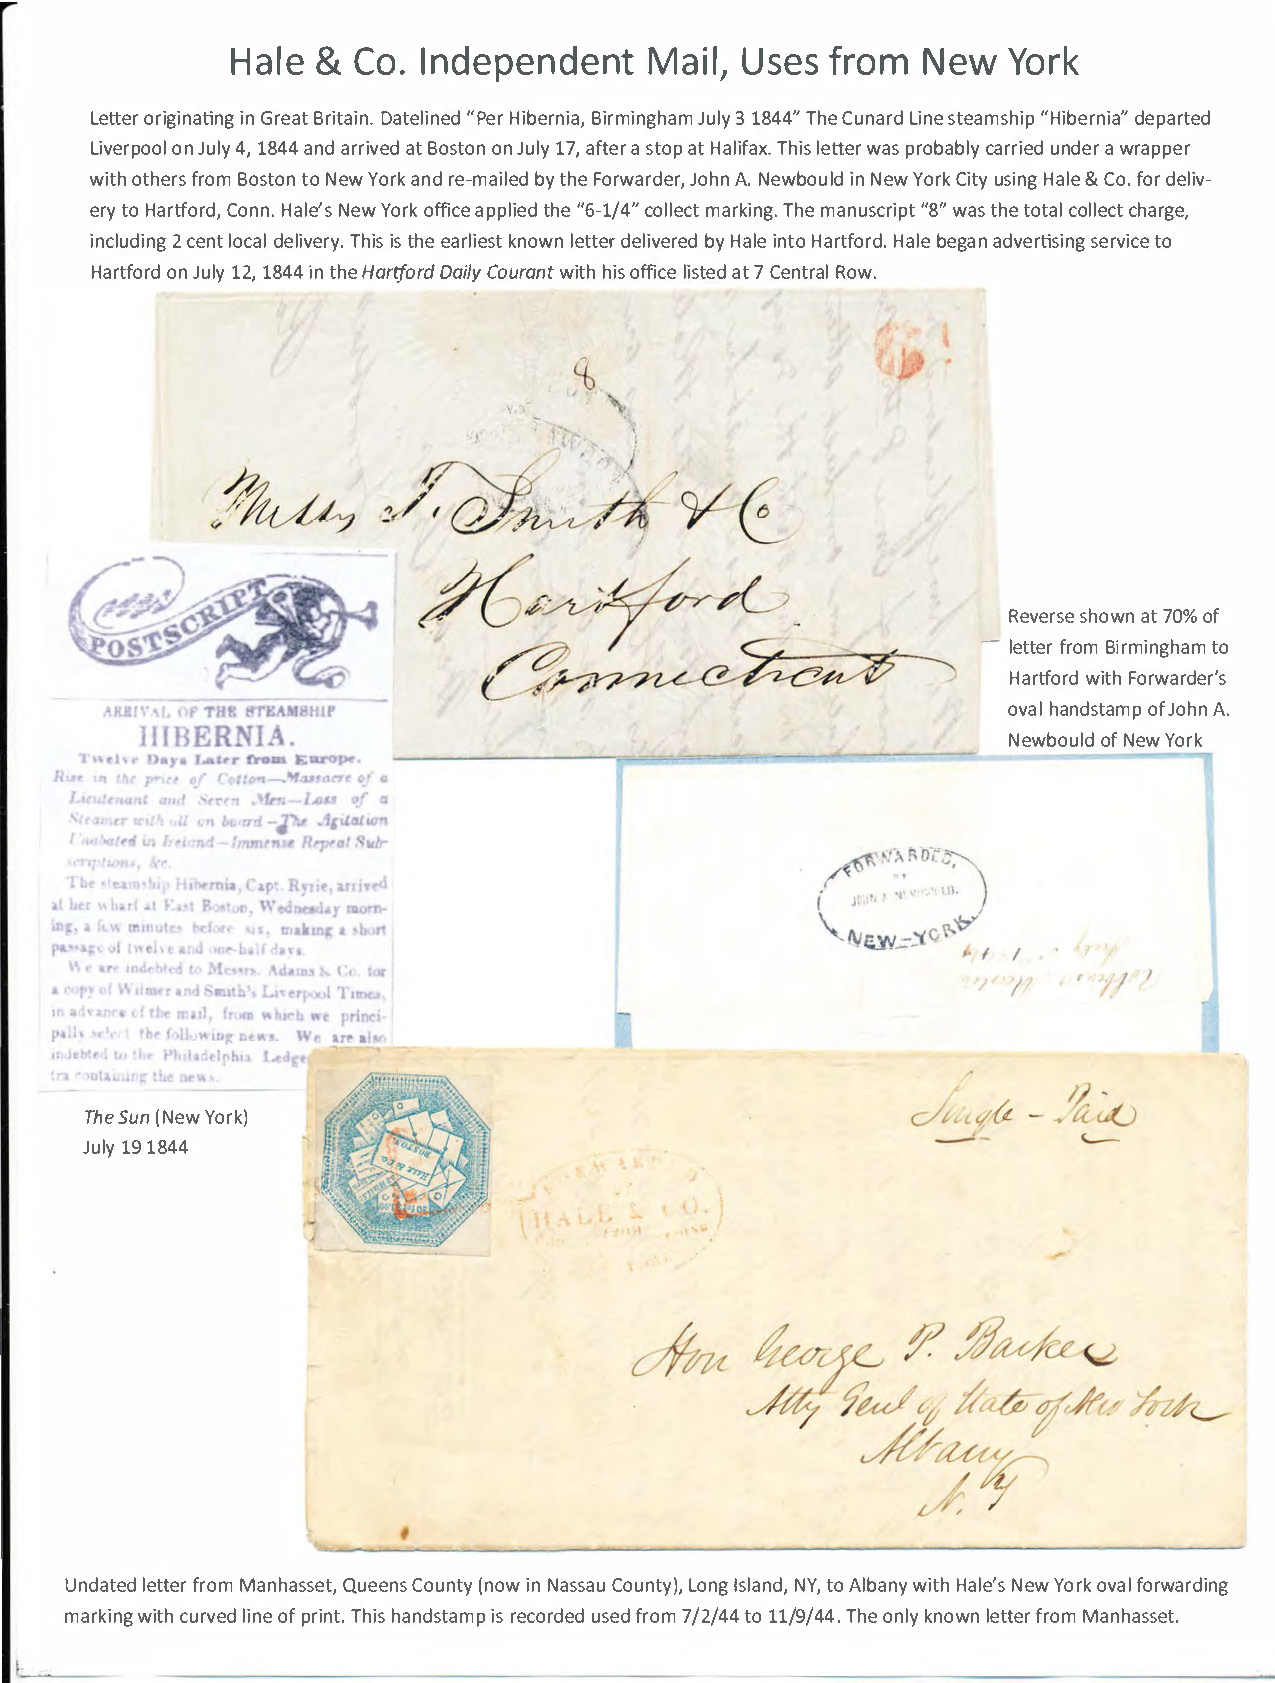 Hale & Co. Independent Mail, Uses from New York
Letter originating in Great Britain. Datelined “Per Hibernia, Birmingham July 3 1844” The Cunard Line steamship “Hibernia” departed
Liverpool on July 4, 1844 and arrived at Boston on July 17, after a stop at Halifax. This letter was probably carried under a wrapper
with others from Boston to New York and re-mailed by the Forwarder, John A. Newbould in New York City using Hale & Co. for deliv-
ery to Hartford, Conn. Hale’s New York office applied the “6-1/4” collect marking. The manuscript “8” was the total collect charge,
including 2 cent local delivery. This is the earliest known letter delivered by Hale into Hartford. Hale began advertising service to
Hartford on July 12, 1844 in the Hartford Daily Courant with his office listed at 7 Central Row.
8
Messrs T. Smith & Co
Hartford
Connecticut
POSTSCRIPT
ARRIVAL OF THE STEAMSHIP
HIBERNIA.
Twelve Days Later from Europe.
Rise in the price of Cotton—Massacre of a
Lieutenant and Seven Men—Loss of a
Steamer with all on board—The Agitation
Unabated in Ireland—Immense Repeal Sub-
scriptions, &c.
The steamship Hibernia, Capt. Ryrie, arrived
at her wharf at East Boston, Wednesday morn-
ing, a few minutes before six, making a short
passage of twelve and one-half days.
We are indebted to Messrs. Adams & Co. for
a copy of Wilmer and Smith's Liverpool Times,
in advance of the mail, from which we princi-
pally select the following news. We are also
indebted to the Philadelphia Ledge
tra containing the news.
The Sun (New York)
July 19 1844
Reverse shown at 70% of
letter from Birmingham to
Hartford with Forwarder’s
oval handstamp of John A.
Newbould of New York
FORWARDED,
BY
JOHN A. NEWBOULD.
NEW-YORK.
HALE & CO.
BOSTON
Single - Paid
HALE & CO.
Hon George P. Barker
Atty Genl of State of New York
Albany
N. Y
Undated letter from Manhasset, Queens County (now in Nassau County), Long Island, NY, to Albany with Hale’s New York oval forwarding
marking with curved line of print. This handstamp is recorded used from 7/2/44 to 11/9/44. The only known letter from Manhasset.